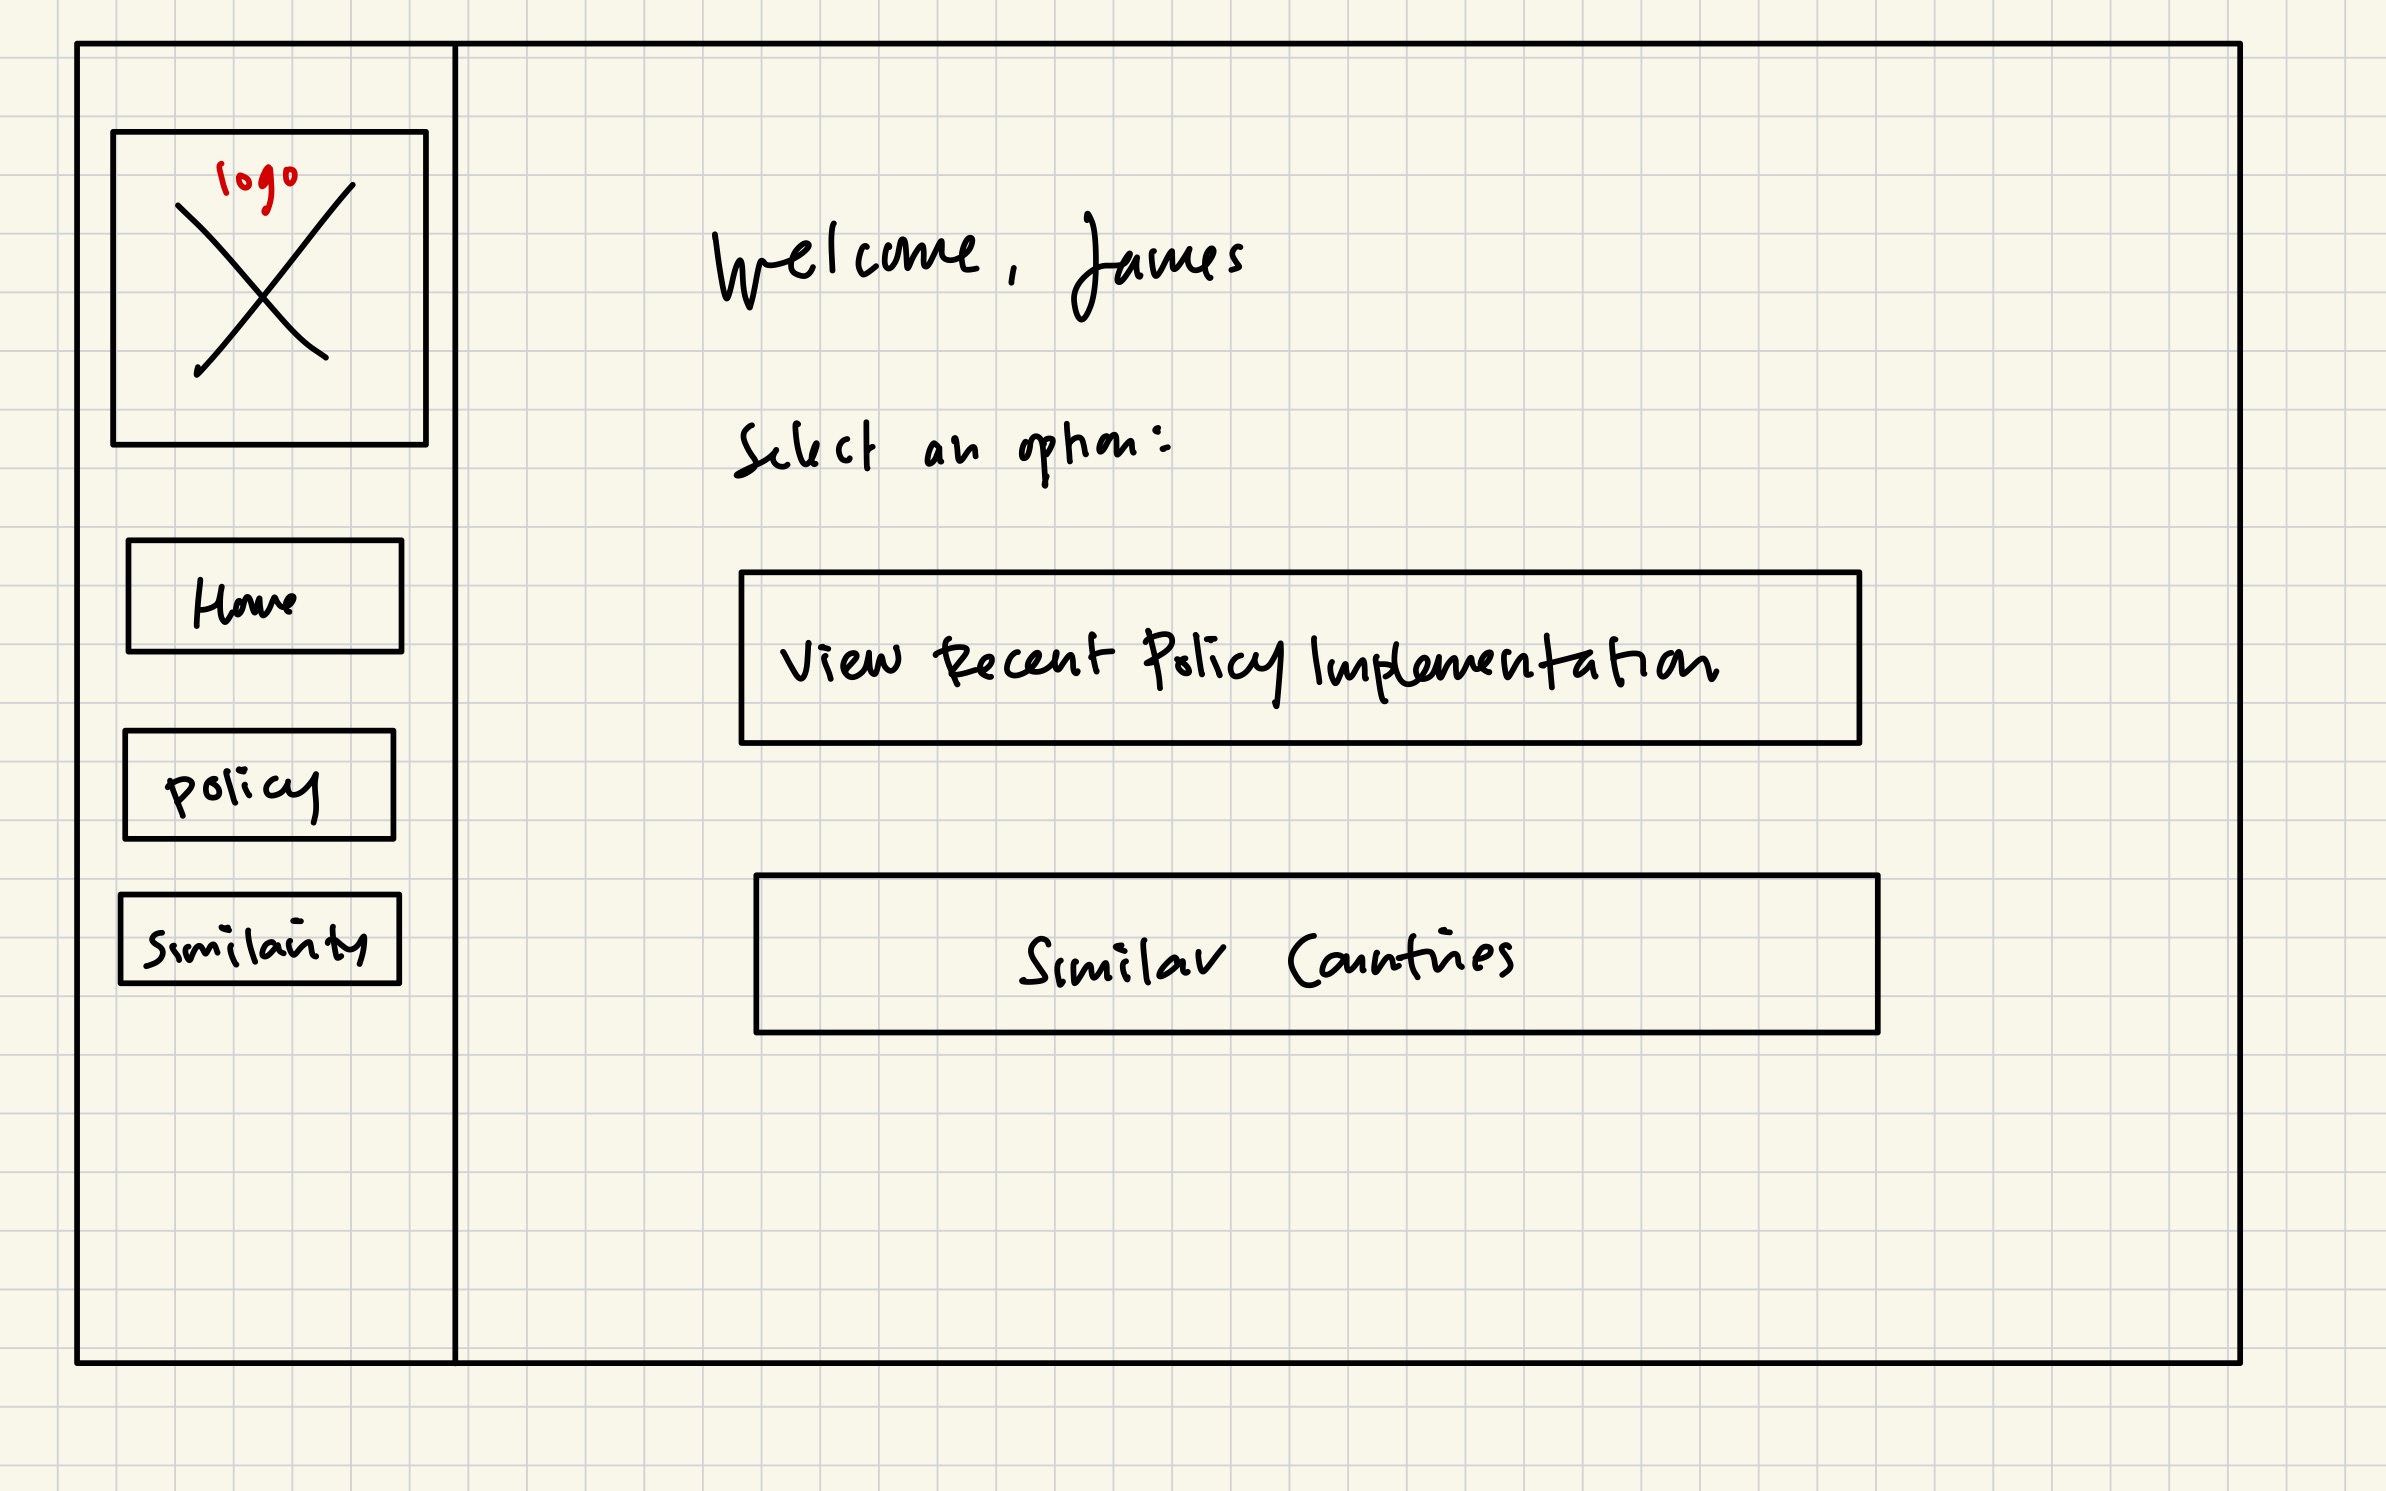 logo
Home
policy
Similarity
Welcome, James
Select an option:
View Recent Policy Implementation
Similar Countries